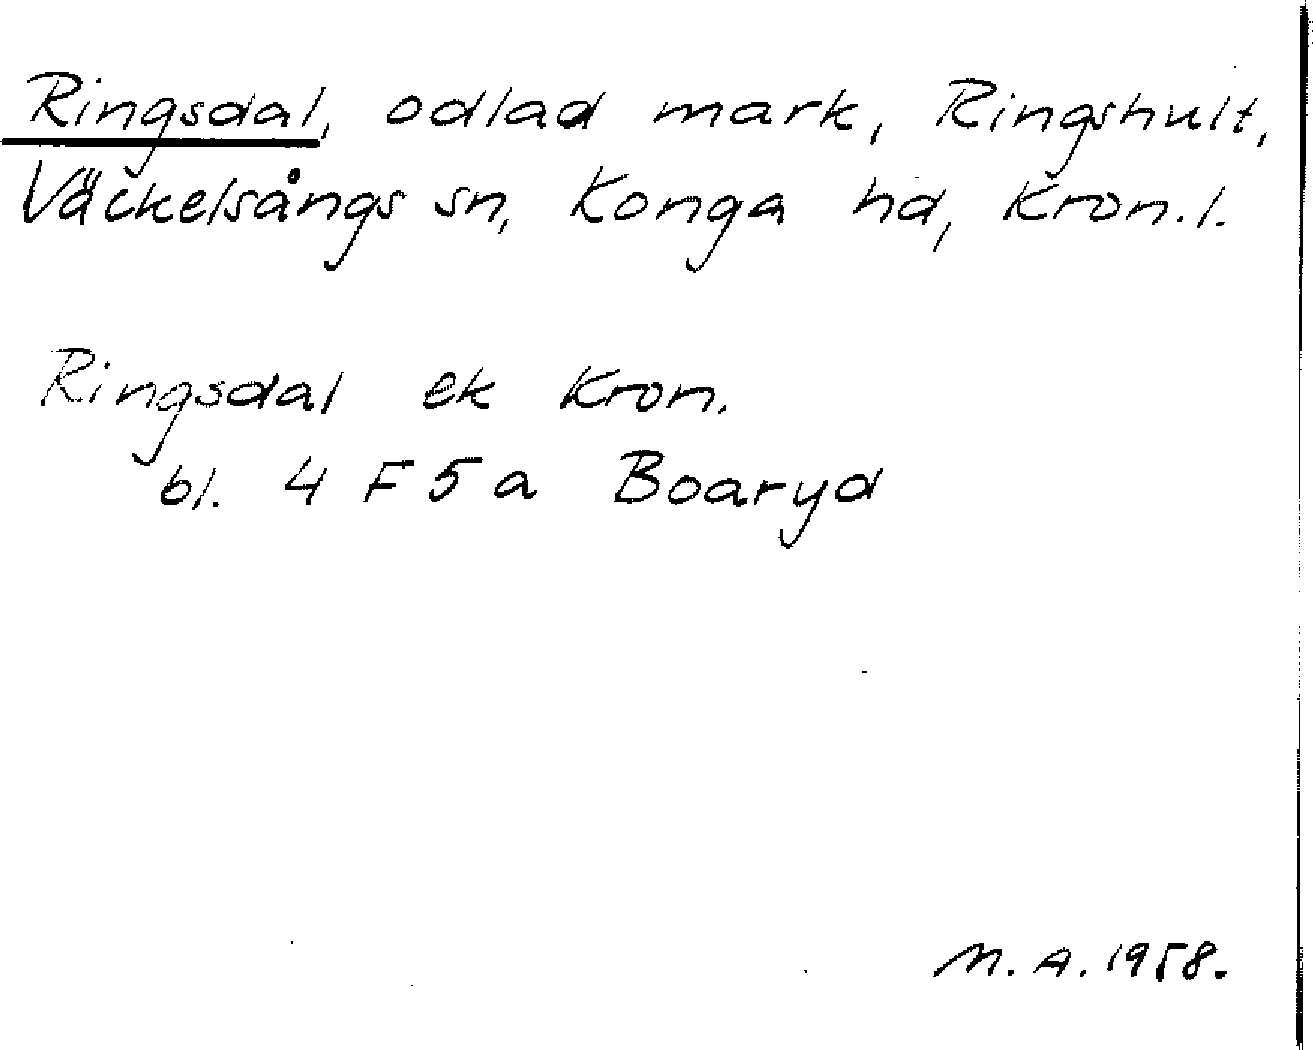 Ringsdal, odlad mark, Ringshult,
Väckelsångs sn, Konga hd, Kron.l.
Ringsdal ek Kron.
bl. 4 F 5 a Boaryd
M.A. 1958.